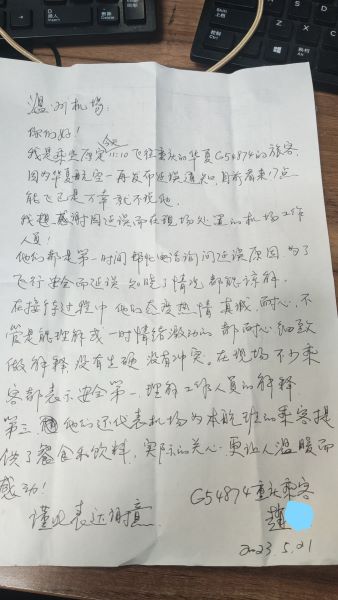 温州机场:
你们好!
我是乘坐原定今天11:10飞往重庆的华夏G54874的旅客.
因为华夏航空一再发布延误通知,目前看来17点
能飞已是万幸就不提他.
我想感谢因延误而在现场处置的机场工作
人员!
他们都是第一时间都北电话询问延误原因 为了
飞行安全而延误 知晓了情况都能谅解.
在接待过程中他们态度热情 真诚、耐心、不
管是能理解或一时情绪激动的都耐心细致
做解释没有生硬 没有冲突。在现场不少乘
客都表示安全第一,理解工作人员的解释.
第三他们还代表机场为本航班的乘客提
供了餐食和饮料,实际的关心.更让人温暖而
感动!
G54874重庆乘客
谨此表达谢意
赵
2023.5.21